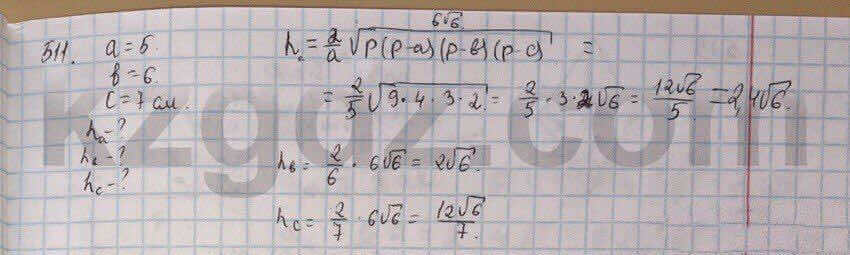 511. a = 5.
b = 6.
c = 7 см.
hₐ - ?
h_b - ?
h_c - ?
6√6
hₐ = 2/a √p(p-a)(p-b)(p-c) =
= 2/5 √9·4·3·2 = 2/5 · 3·2√6 = 12√6/5 = 2,4√6.
h_b = 2/6 · 6√6 = 2√6.
h_c = 2/7 · 6√6 = 12√6/7.
kzgdz.com